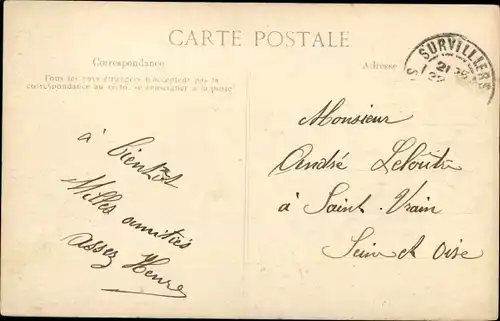 CARTE POSTALE
Correspondance
Tous les pays étrangers n'acceptent pas la
correspondance au recto, se renseigner à la poste
Adresse
SURVILLIERS
21
à bientôt
Milles amitiés
assez
Monsieur
André
à Saint-Vrain
Seine et Oise